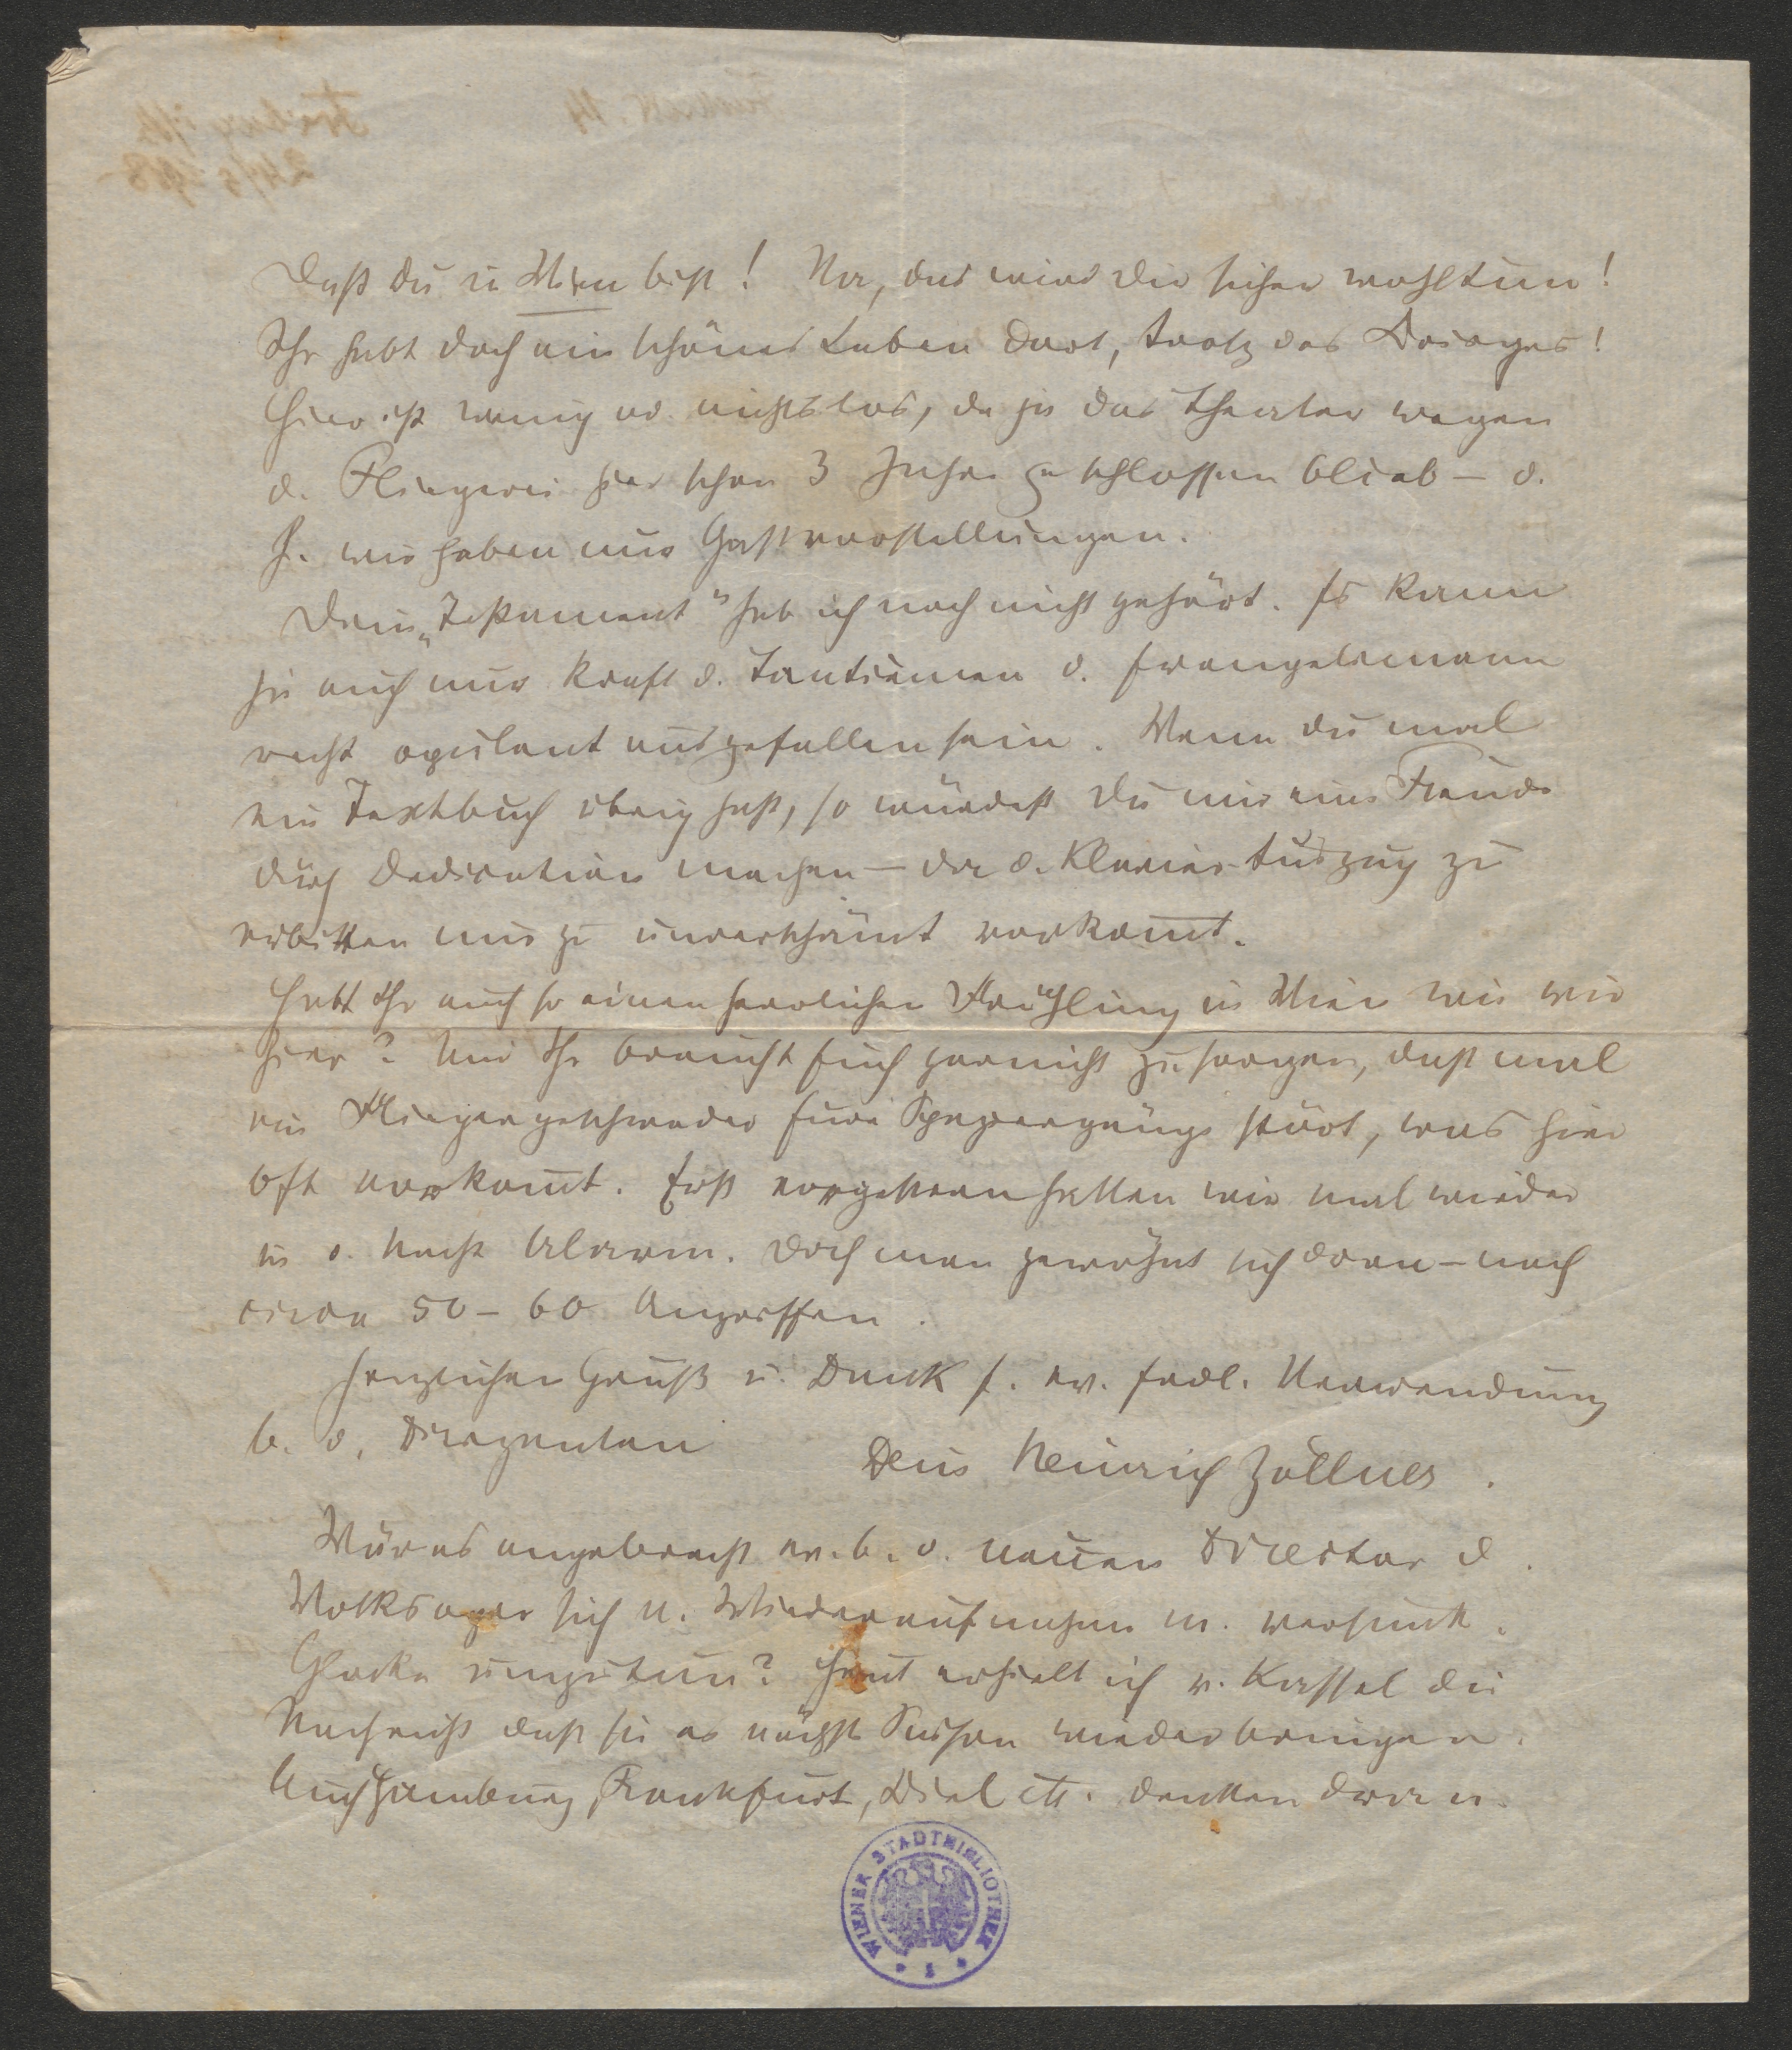 Daß du in Wien bist! Na, das wird Dir sicher wohltun!
Ihr habt doch ein schönes Leben dort, trotz des Krieges!
Hier ist wenig od. nichts los, da ja das Theater wegen
d. Fliegerei hier schon 3 Jahre geschlossen blieb – d.
h. wir haben nur Gastvorstellungen.
Dein „Testament" hab ich noch nicht gehört. Es kann
ja auch nur kraft d. Tantiemen d. Evangelimann
recht opulent ausgefallen sein. Wenn du mal
ein Textbuch übrig hast, so würdest Du mir eine Freude
durch Dedication machen – da d. Klavier-Auszug zu
erbitten mir zu unverschämt vorkom̅t.
Habt Ihr auch so einen herrlichen Frühling in Wien wie wir
hier? Und Ihr braucht Euch garnicht zu sorgen, daß mal
ein Fliegergeschwader Eure Spaziergänge stört, was hier
oft vorkom̅t. Erst vorgestern hatten wir mal wieder
in d. Nacht Alarm. Doch man gewöhnt sich dran – nach
circa 50 – 60 Angriffen.
Herzlichen Gruß u. Dank f. ev. frdl. Verwendung
b. d. Dirigenten
Dein Heinrich Zöllner.
Wär es angebracht ev. b. d. neuen Director d.
Volksoper sich u. Wiederaufnahme m. versunk.
Glocke umzutun? Heut erhielt ich v. Kassel die
Nachricht daß sie es nächste Saison wiederbringen.
Auch Hamburg, Frankfurt, Kiel etc. denken daran.
WIENER STADTBIBLIOTHEK